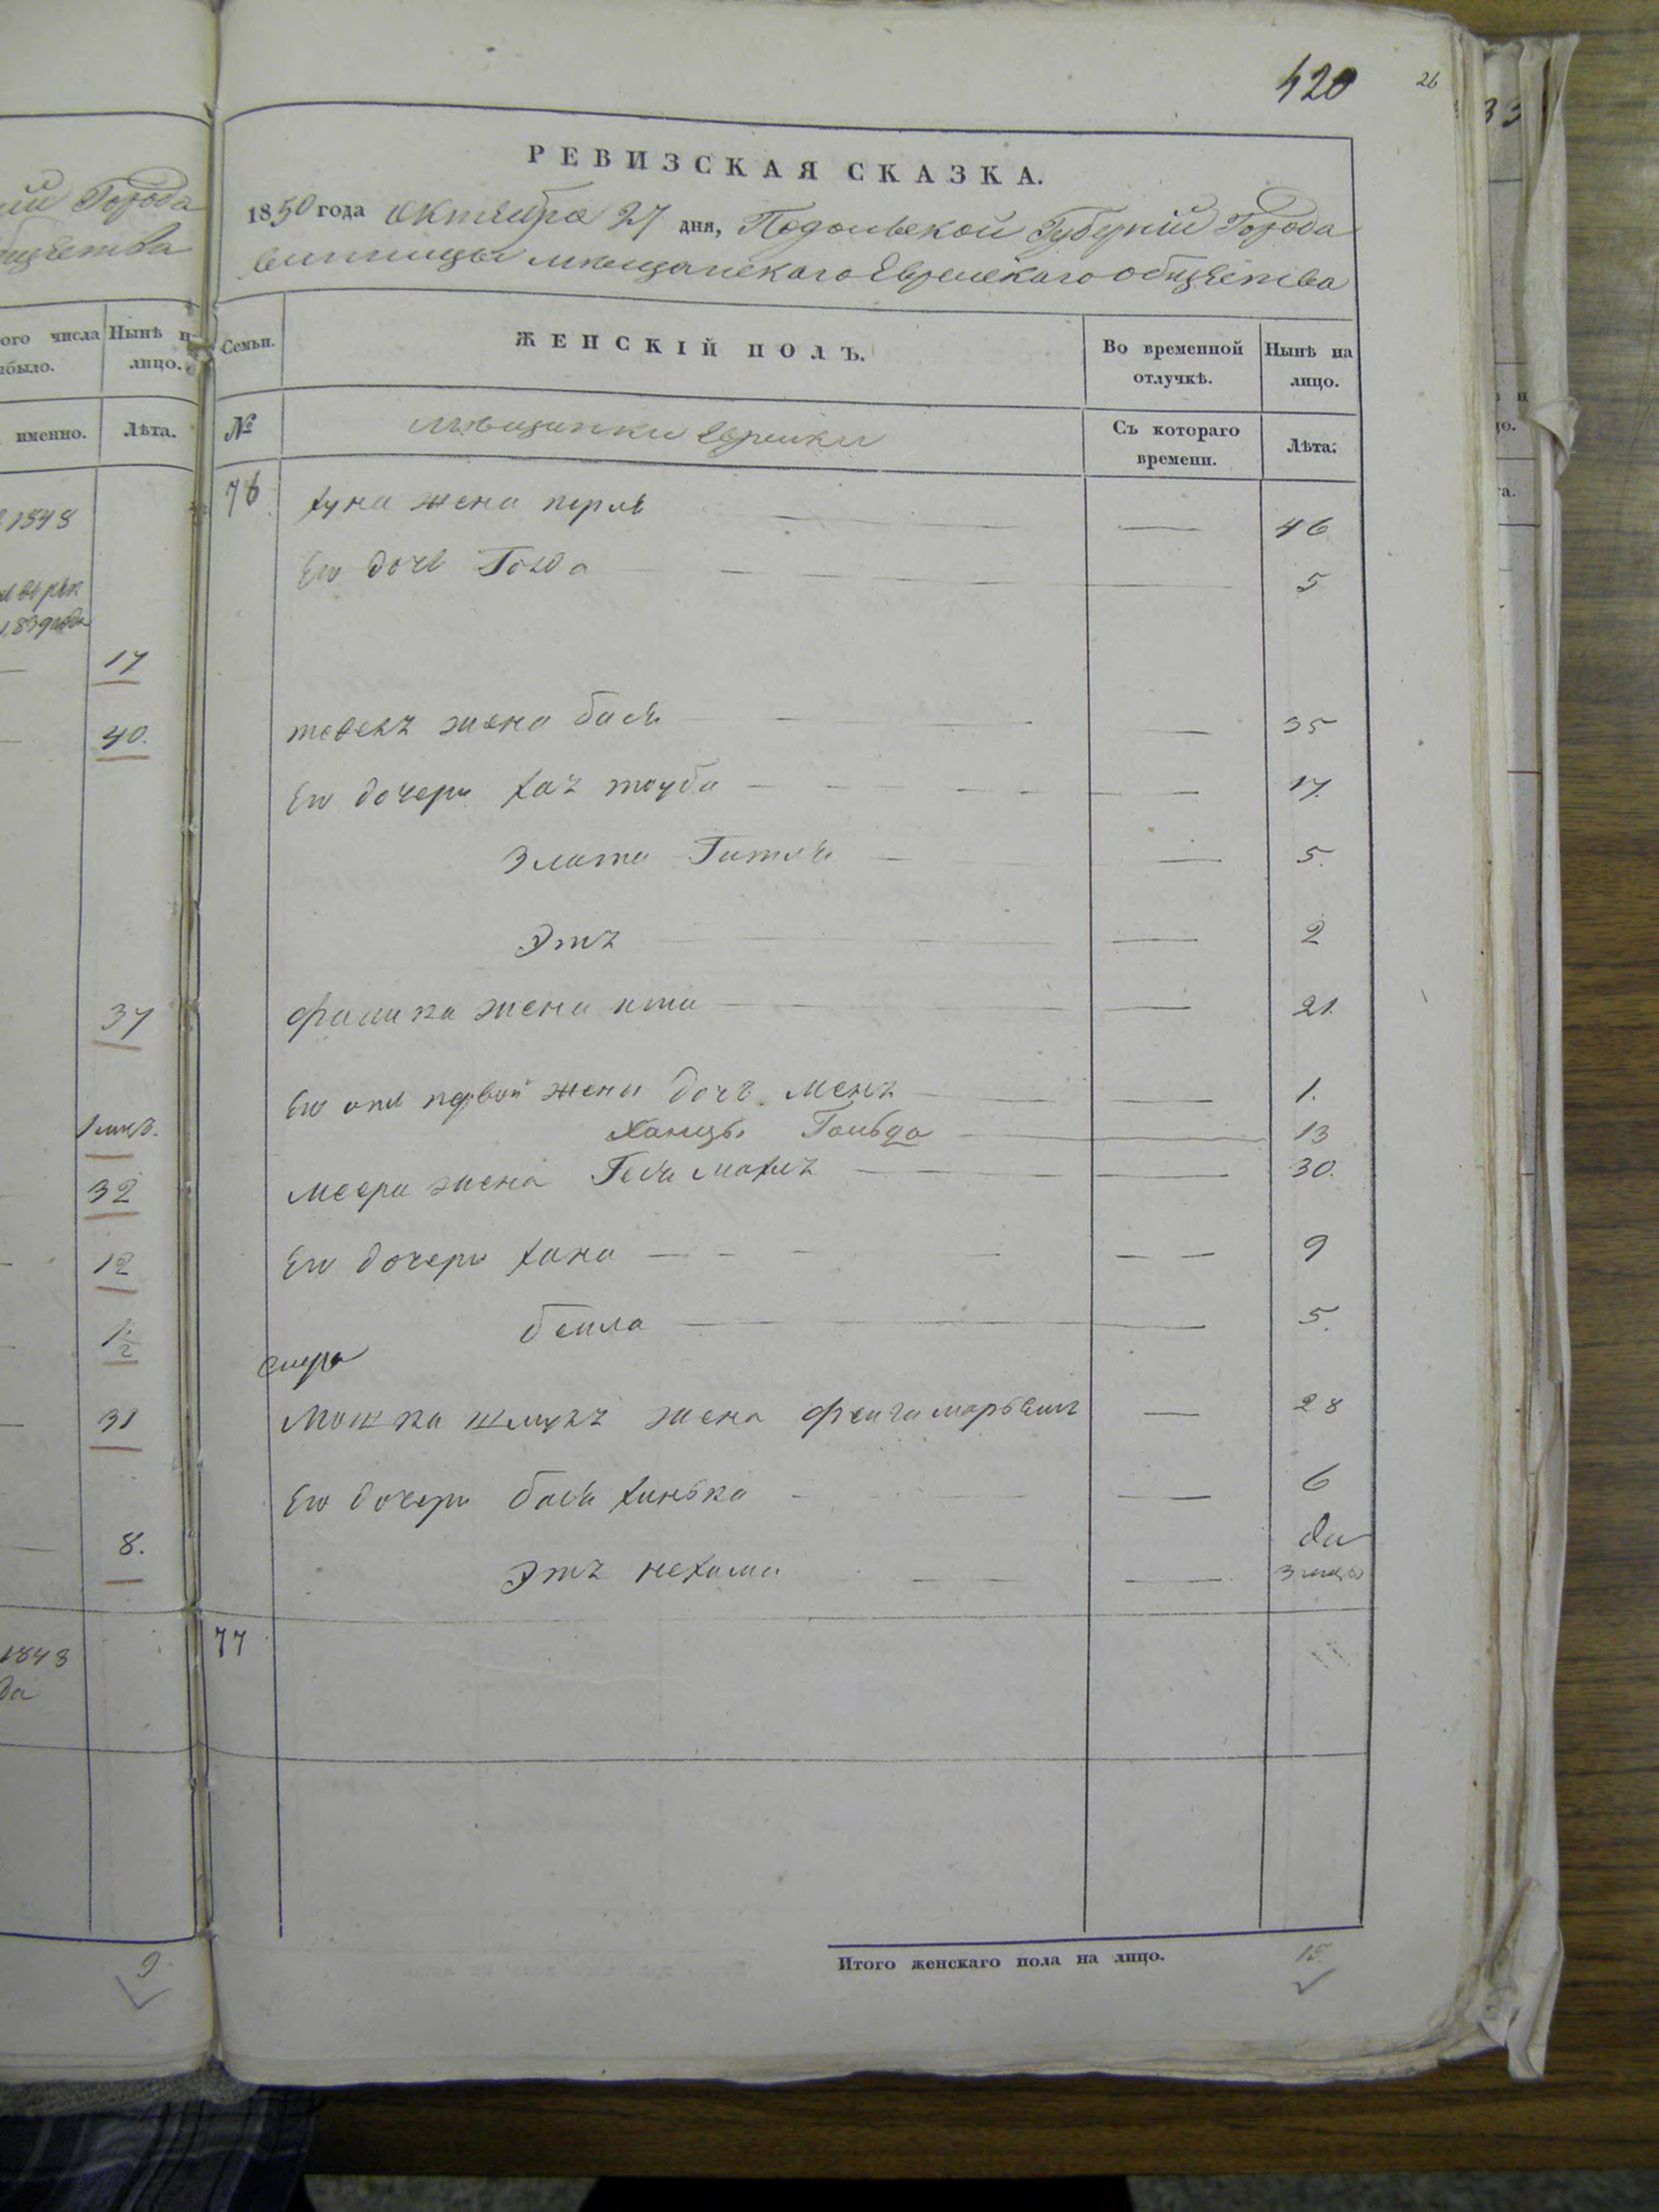 420
26
33
РЕВИЗСКАЯ СКАЗКА.
1850 года октября 27 дня, Подольской Губерніи Города
винницы мѣщанскаго Еврейскаго общества
ій Города
бщества
ого числа
ыбыло.
Нынѣ н
лицо.
именно.
Лѣта.
Семьи.
ЖЕНСКІЙ ПОЛЪ.
Во временной
отлучкѣ.
Нынѣ на
лицо.
№
мѣщанки Еврейки
Съ котораго
времени.
Лѣта:
76
хуна жена перля 46
Его дочь Голда 5
жена бася 35
Его дочери хая тауба 17.
Злата Гитля 5.
Этя 2
жена ита 21.
Его отъ первой жены дочь меня 1.
Ханцы Гольда 13
меера жена Геся малия 30.
Его дочери хана 9
бейла 5.
Мошка жена фейга 28
Его дочери бася ханька 6
Этя нехама 3 мцы
77
Итого женскаго пола на лицо. 15
1848
1839 года
17
40.
37
1 мцъ.
32
12
1/2
31
8.
1848
да
9